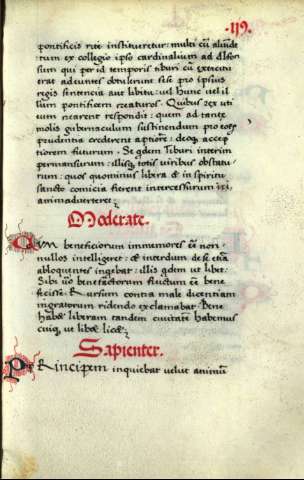 119.
pontificis rite institueretur: multi cū aliūde
tum ex collegio ipso cardinalium ad Alfon
sum qui per id temporis tiburi cū exercitu
erat adeuntes obtulerunt sese pro ipsius
regis sententia aut libitu: vel hunc vel il
lum pontificem creaturos. Quibus rex uti
tum rearent respondit: quem ad tante
molis gubernaculum sustinendum pro eorū
prudentia crederent aptiorē: deoq; accep
tiorem futurum. Se qdem Tiburi interim
permansurum: illisq; totis viribus obstatu
rum: quos quominus libera & in spiritu
sancto comicia fierent intercessurum iri,
animadverteret:
Moderate.
QVM beneficiorum immemores eē non
nullos intelligeret: & interdum de se etiā
abloquentes ingebat: illis qdem ut libet:
Sibi uō benefactorum fructum eē bene
fecisse. Rursum contra male dicentiam
ingratorum ridendo exclamabat. Bene
habet liberam tandem civitatē habemus
cuiq; ut libet licet
Sapienter.
PRincipem inquiebat velut animū